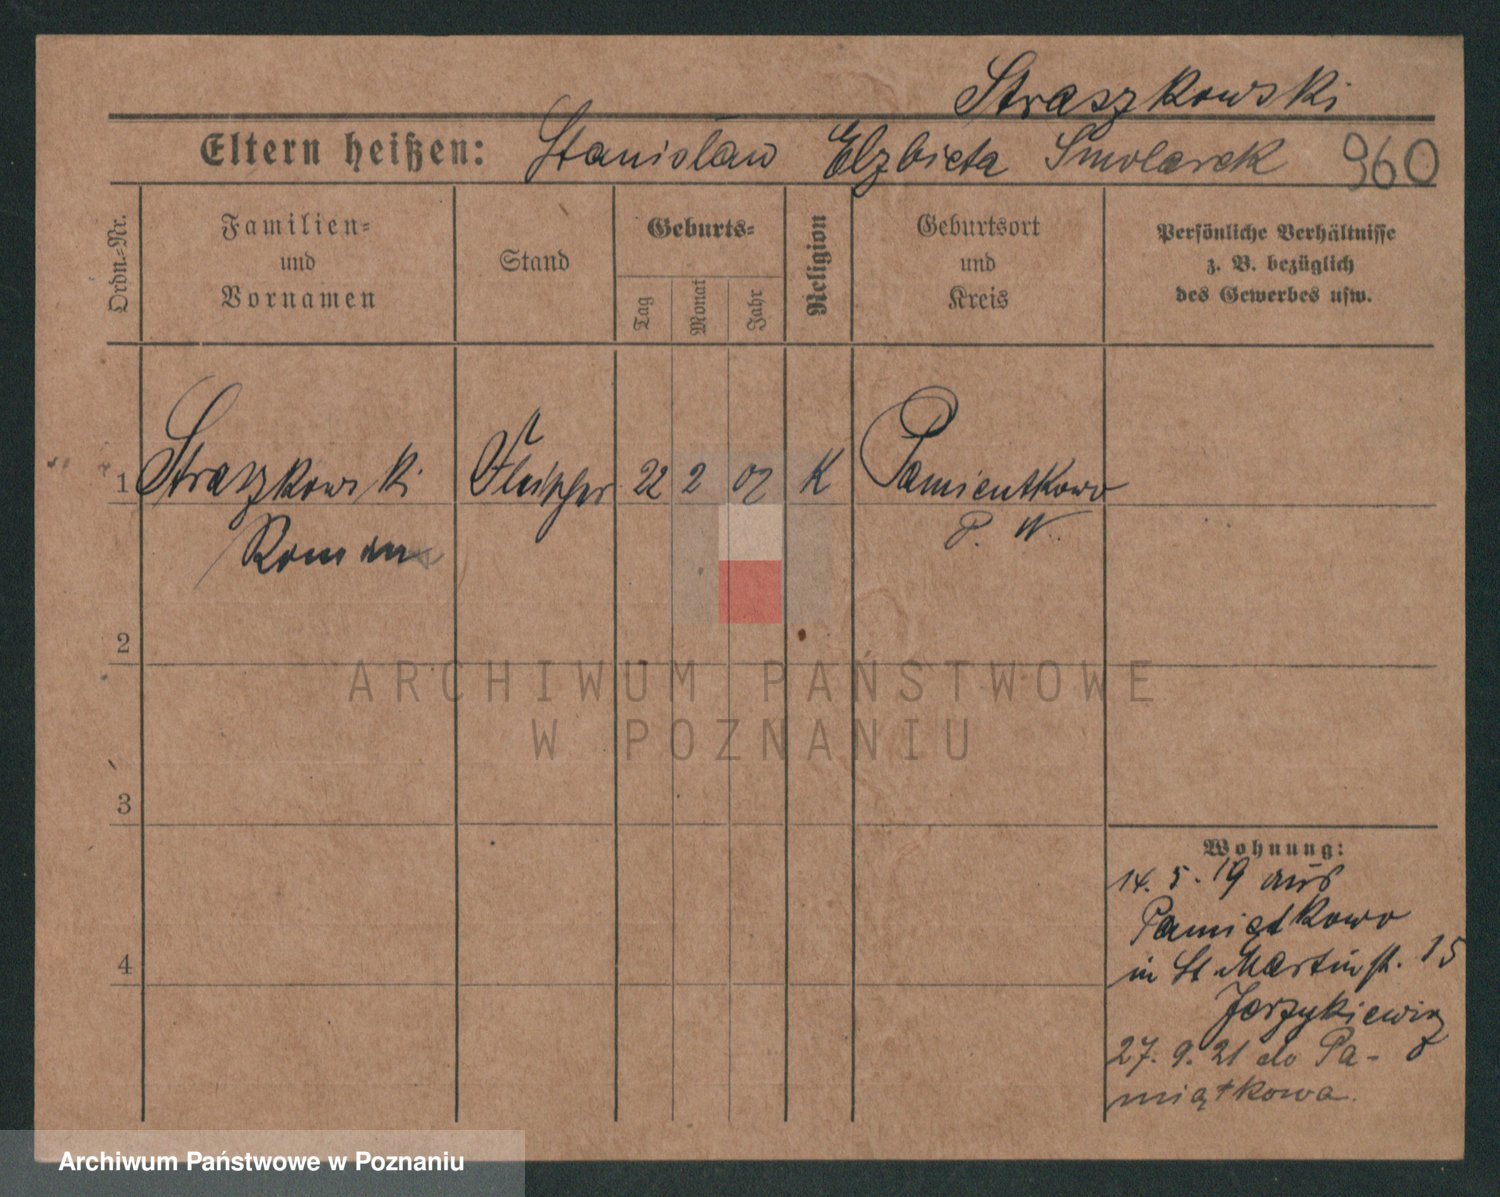 Straszkowski
Eltern heißen: Stanisław Elzbieta Smolarek 960
Ordn.-Nr.
Familien-
und
Vornamen
Stand
Geburts-
Tag
Monat
Jahr
Religion
Geburtsort
und
Kreis
Persönliche Verhältnisse
z. B. bezüglich
des Gewerbes usw.
1 Straszkowski Fleischer 22 2 02 K Pamientkowo
Roman P. W.
2
ARCHIWUM PAŃSTWOWE
W POZNANIU
3
Wohnung:
14. 5. 19 aus
Pamiątkowo
in St Martinst. 15
4
Jerzykiewicz
27. 9. 21 do Pa-
miątkowa.
Archiwum Państwowe w Poznaniu